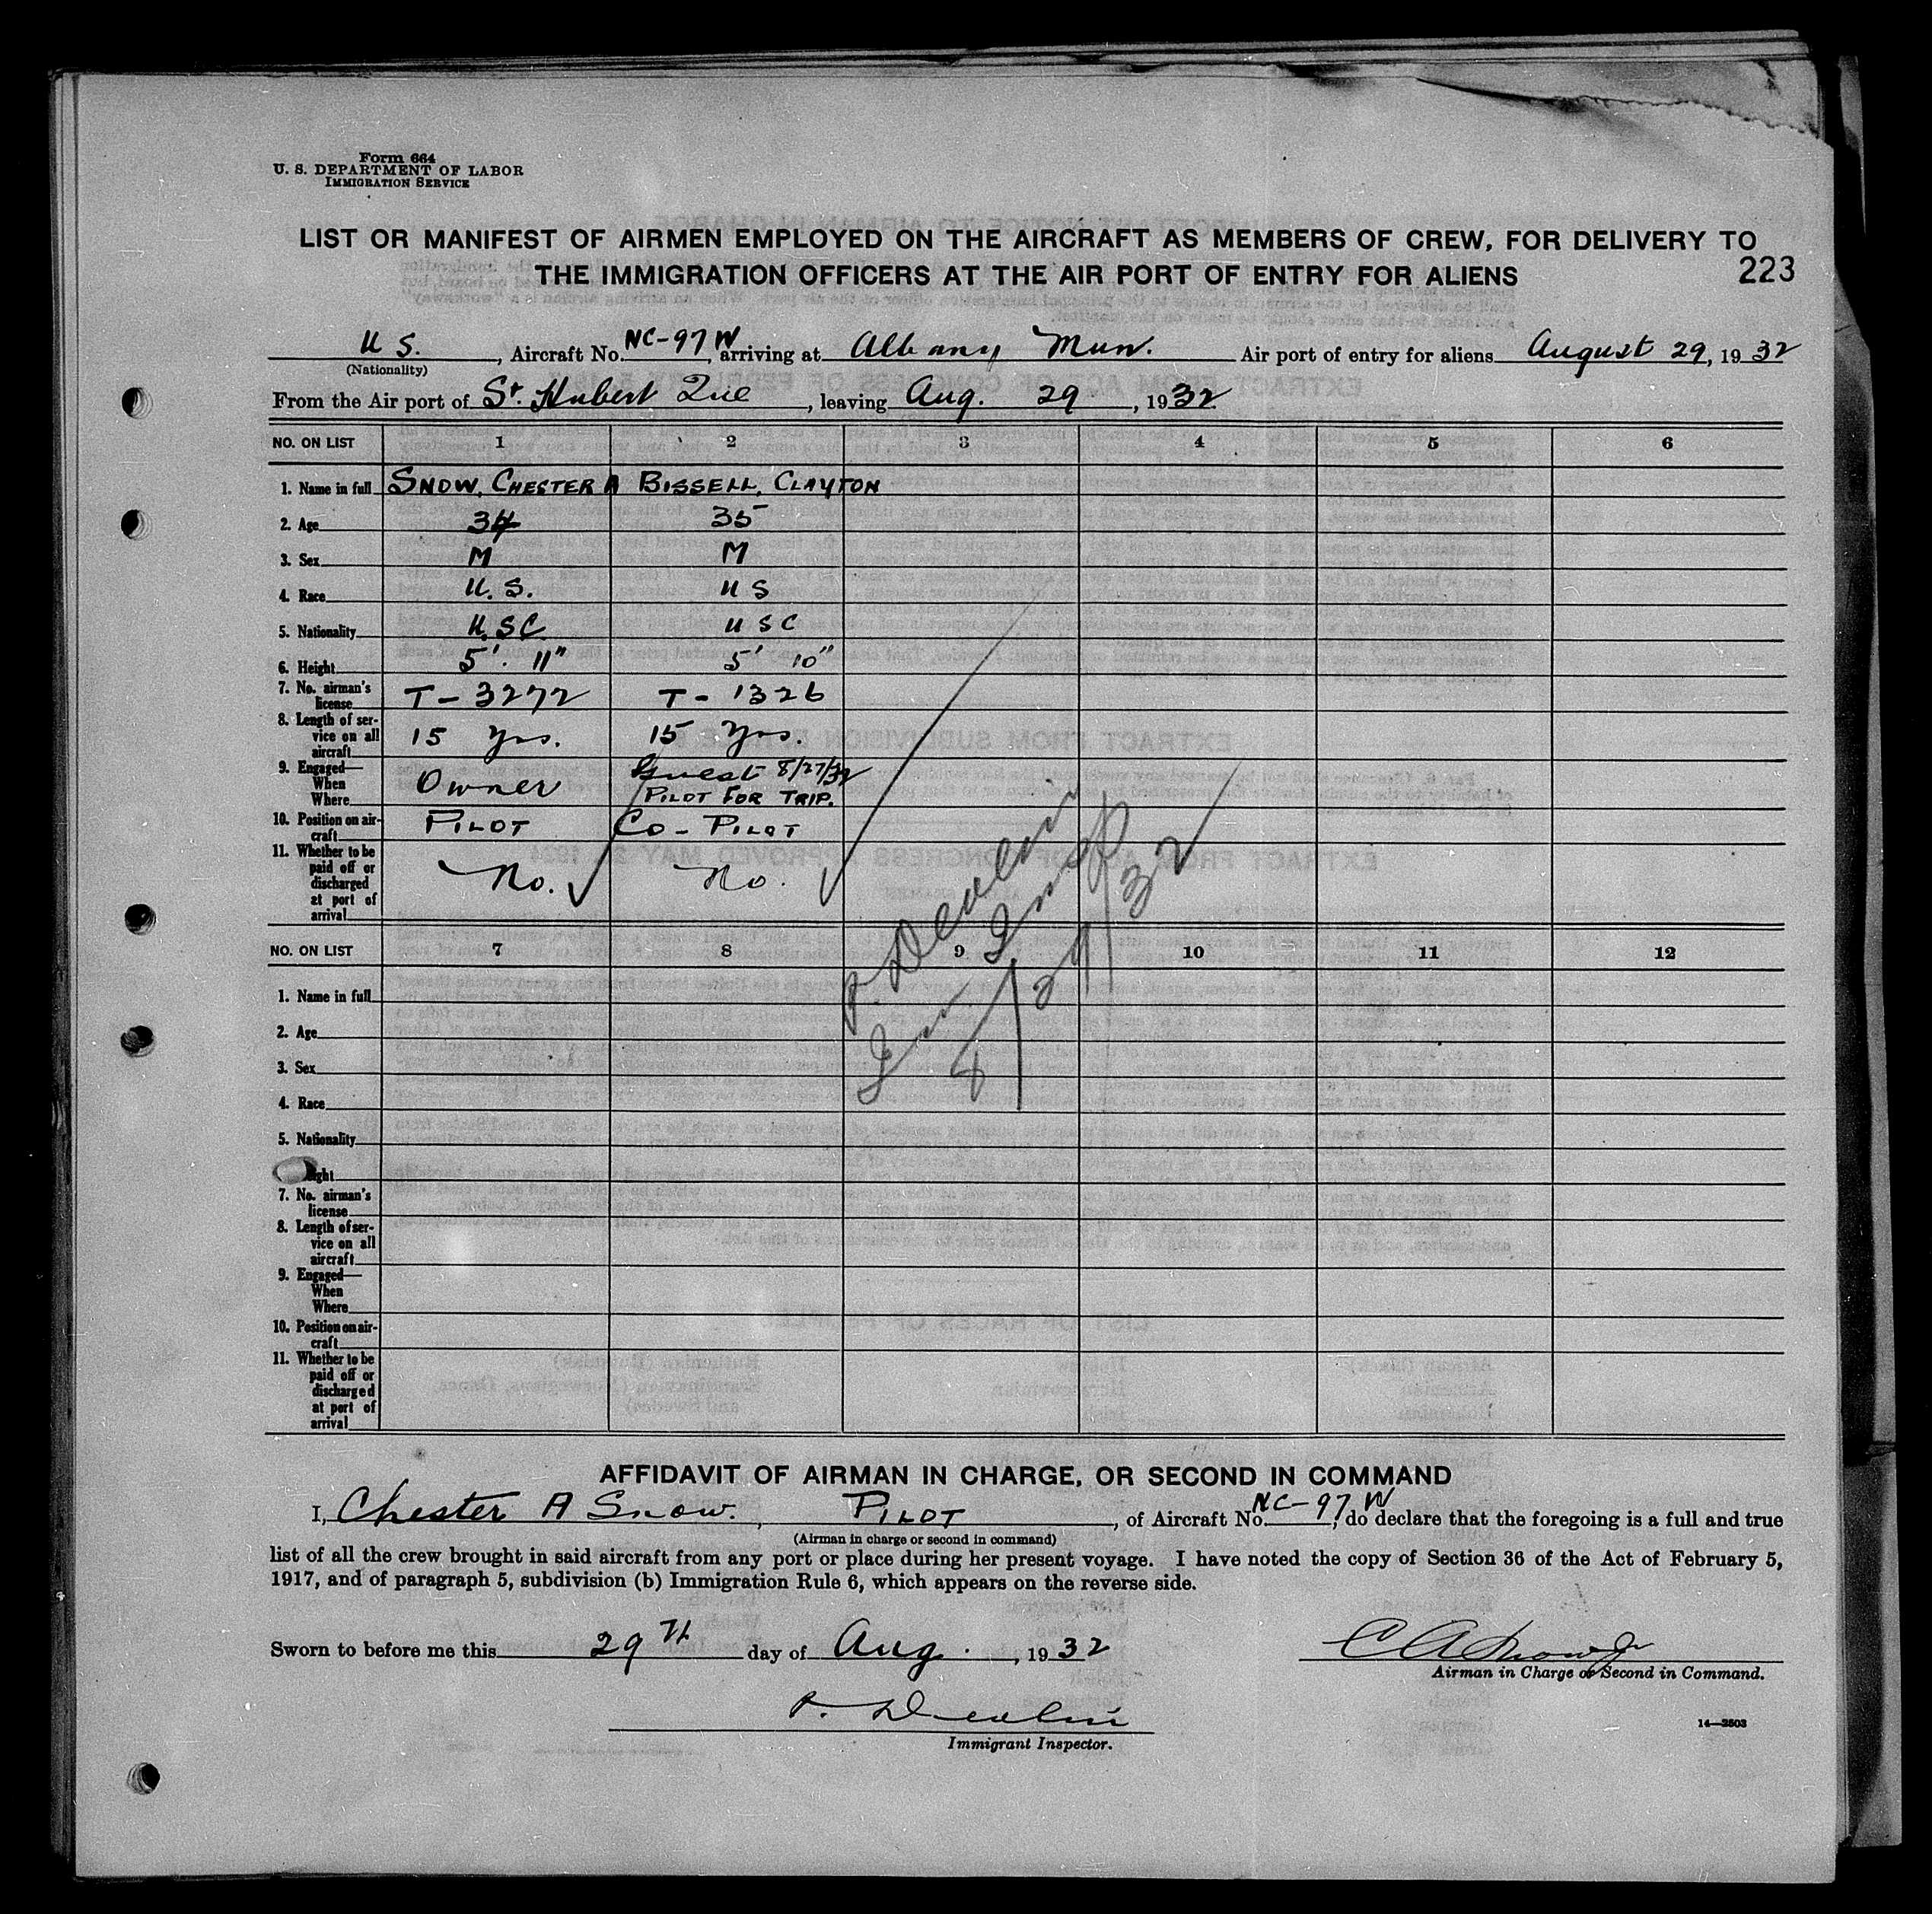 Form 664
U. S. DEPARTMENT OF LABOR
IMMIGRATION SERVICE
LIST OR MANIFEST OF AIRMEN EMPLOYED ON THE AIRCRAFT AS MEMBERS OF CREW, FOR DELIVERY TO
THE IMMIGRATION OFFICERS AT THE AIR PORT OF ENTRY FOR ALIENS
223
U S. , Aircraft No. NC-97W, arriving at Albany Mun. Air port of entry for aliens August 29, 1932
(Nationality)
From the Air port of St. Hubert Que , leaving Aug. 29, 1932
NO. ON LIST 1 2 3 4 5 6
1. Name in full SNOW, CHESTER A BISSELL, CLAYTON
2. Age 34 35
3. Sex M M
4. Race U. S. U S
5. Nationality U. S C. U S C
6. Height 5' 11" 5' 10"
7. No. airman's license T-3272 T-1326
8. Length of service on all aircraft 15 Yrs. 15 Yrs.
9. Engaged— When Where Owner Guest 8/27/32 PILOT FOR TRIP.
10. Position on aircraft PILOT CO-PILOT
11. Whether to be paid off or discharged at port of arrival No. No.
Devlin
Imm Insp
8/29/32
NO. ON LIST 7 8 9 10 11 12
1. Name in full
2. Age
3. Sex
4. Race
5. Nationality
ight
7. No. airman's license
8. Length of service on all aircraft
9. Engaged— When Where
10. Position on aircraft
11. Whether to be paid off or discharged at port of arrival
AFFIDAVIT OF AIRMAN IN CHARGE, OR SECOND IN COMMAND
I, Chester A Snow. , PILOT , of Aircraft No. NC-97W, do declare that the foregoing is a full and true
(Airman in charge or second in command)
list of all the crew brought in said aircraft from any port or place during her present voyage. I have noted the copy of Section 36 of the Act of February 5,
1917, and of paragraph 5, subdivision (b) Immigration Rule 6, which appears on the reverse side.
Sworn to before me this 29th day of Aug. , 1932
C A Snow Jr
Airman in Charge or Second in Command.
Devlin
Immigrant Inspector.
14—2503